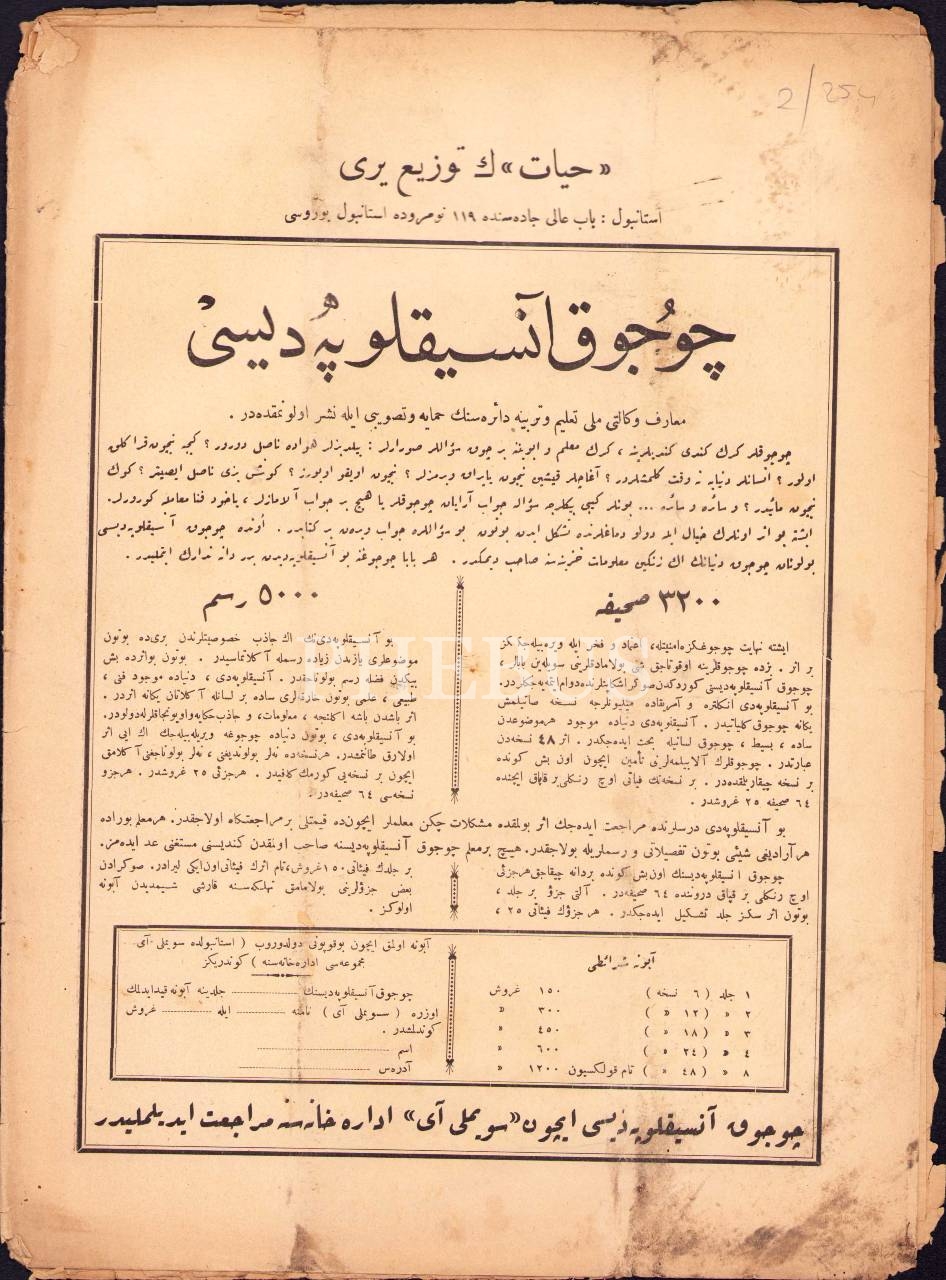 2/254
«حیات» ك توزیع یری
استانبول : باب عالی جاده‌سنده ۱۱۹ نومروده استانبول بوروسی
چوجوق آنسیقلوپه‌دیسی
معارف وكالتی ملی تعلیم و تربیه دائره‌سنك حمایه و تصویبی ایله نشر اولونمقده‌در .
چوجوقلر كرك كندی كندیلرینه ، كرك معلم و ابوینه بر چوق سؤاللر صورارلر : ییلدیزلر هواده ناصل دورور ؟ كیجه نیچون قراكلق
اولور ؟ انسانلر دنیایه نه وقت كلمشلردر ؟ آغاجلر قیشین نیچون یاپراق ویرمزلر ؟ نیچون اویقو اویورز ؟ كونش بزی ناصل ایصیتیر ؟ كوك
نیچون مائیدر ؟ و سائره و سائره ... بونلر كبی بیكلرجه سؤاله جواب آرایان چوجوقلر یا هیچ بر جواب آلامازلر ، یاخود فنا معامله كورورلر.
ایشته بو اثر اونلرك خیال ایله دولو دماغلرنده تشكل ایدن بوتون بو سؤاللره جواب ویرن بر كتابدر . اونده چوجوق آنسیقلوپه‌دیسی
بولونان چوجوق دنیانك اك زنكین معلومات خزینه‌سنه صاحب دیمكدر . هر بابا چوجوغنه بو آنسیقلوپه‌دیدن بر دانه تدارك ایتملیدر .
۳۲۰۰ صحیفه
ایشته نهایت چوجوغكزه امنیتله ، اعتماد و فخر ایله ویره‌بیله‌جككز
بر اثر . بزده چوجوقلرینه اوقوتاجق شی بولامادقلرینی سویله‌ین بابالر ،
چوجوق آنسیقلوپه‌دیسنی كوردكدن صوكرا شكایتلرنده دوام ایتمه‌یه‌جكلردر.
بو آنسیقلوپه‌دی انكلتره و آمریقاده میلیونلرجه نسخه صاتیلمش
یكانه چوجوق كلیاتیدر . آنسیقلوپه‌دی دنیاده موجود هر موضوعدن
ساده ، بسیط ، چوجوق لسانیله بحث ایده‌جكدر . اثر ۴۸ نسخه‌دن
عبارتدر . چوجوقلرك آلابیلمه‌لرینی تأمین ایچون اون بش كونده
بر نسخه چیقاریلمقده‌در . بر نسخه‌نك فیاتی اوچ رنكلی بر قاپاق ایچنده
۶۴ صحیفه ۲۵ غروشدر .
۵۰۰۰ رسم
بو آنسیقلوپه‌دی‌نك اك جاذب خصوصیتلرندن بری‌ده بوتون
موضوعلری یازیدن زیاده رسمله آكلاتماسیدر . بوتون بو اثرده بش
بیكدن فضله رسم بولوناجقدر . آنسیقلوپه‌دی ، دنیاده موجود فنی ،
طبیعی ، علمی بوتون خارقه‌لری ساده بر لسانله آكلاتان یكانه اثردر .
اثر باشدن باشه اكلنجه ، معلومات ، و جاذب حكایه و اویونجاقلرله دولودر.
بو آنسیقلوپه‌دی ، بوتون دنیاده چوجوغه ویریله‌بیله‌جك اك ایی اثر
اولارق طاننمشدر. هر نسخه‌ده نه‌لر بولوندیغنی ، نه‌لر بولوناجغنی آكلامق
ایچون بر نسخه‌یی كورمك كافیدر . هر جزئی ۲۵ غروشدر . هر جزو
نسخه‌سی ۶۴ صحیفه‌در .
بو آنسیقلوپه‌دی درسلرنده مراجعت ایده‌جك اثر بولمقده مشكلات چكن معلملر ایچون‌ده قیمتلی بر مراجعتكاه اولاجقدر. هر معلم بوراده
هر آرادیغی شیئی بوتون تفصیلاتی و رسملریله بولاجقدر. هیچ بر معلم چوجوق آنسیقلوپه‌دیسنه صاحب اولمقدن كندیسنی مستغنی عد ایده‌مز.
چوجوق آنسیقلوپه‌دیسنك اون بش كونده بر دانه چیقاجق هر جزئی
اوچ رنكلی بر قپاق دروننده ۶۴ صحیفه‌در . آلتی جزؤ بر جلد ،
بوتون اثر سكز جلد تشكیل ایده‌جكدر . هر جزؤك فیئاتی ۲۵ ،
بر جلدك فیئاتی ۱۵۰ غروش ، تام اثرك فیئاتی اون ایكی لیرادر. صوكرادن
بعض جزؤلرینی بولامامق تهلكه‌سنه قارشی شیمدیدن آبونه
اولوكز .
آبونه شرائطی
۱ جلد ( ۶ نسخه ) ۱۵۰ غروش
۲ » ( ۱۲ » ) ۳۰۰ »
۳ » ( ۱۸ » ) ۴۵۰ »
٤ » ( ۲٤ » ) ۶۰۰ »
۸ » ( ٤۸ » ) تام قولكسیون ۱۲۰۰ »
آبونه اولمق ایچون بو قوپونی دولدوروب ( استانبولده سویملی آی
مجموعه‌سی اداره‌خانه‌سنه ) كوندریكز
چوجوق آنسیقلوپه‌دیسنك ........ جلدینه آبونه قید ایدلمك
اوزره ( سویملی آی ) نامنه ........ ایله ........ غروش
كوندلشدر .
اسم ........
آدره‌س ........
چوجوق آنسیقلوپه‌دیسی ایچون «سویملی آی» اداره خانه‌سنه مراجعت ایدیلملیدر
PHEBUS